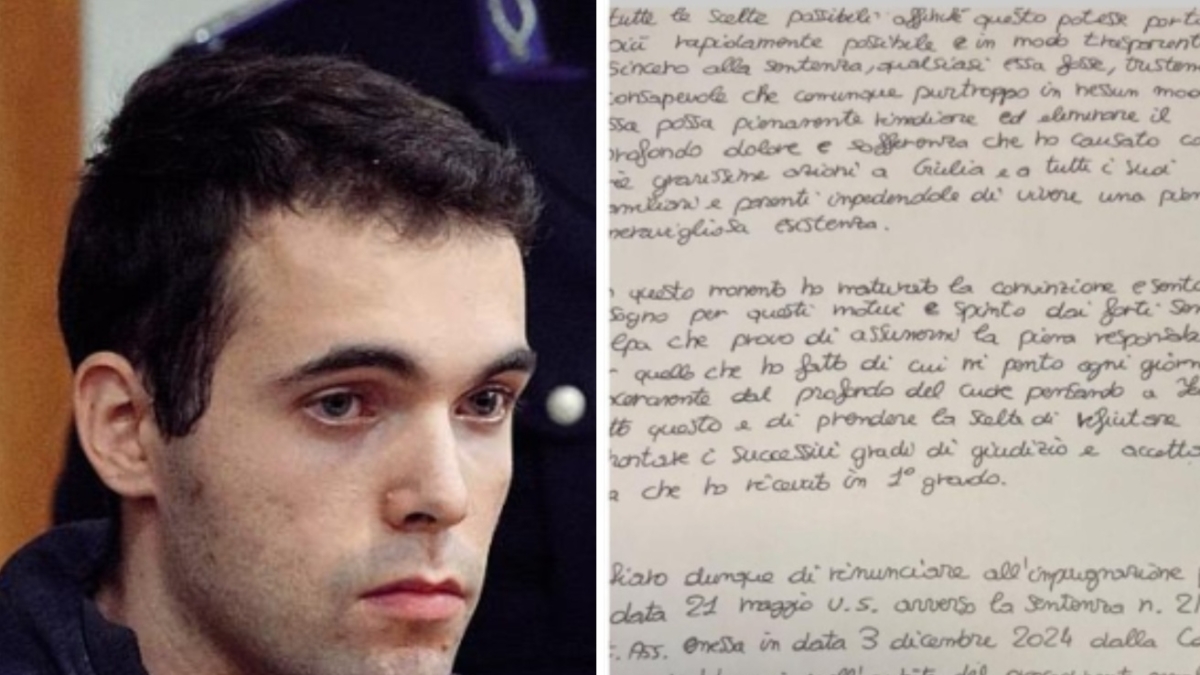 tutte le scelte possibili affinché questo potesse porti
più rapidamente possibile e in modo trasparent
sincero alla sentenza, qualsiasi essa fosse, tristem
onsapevole che comunque purtroppo in nessun mod
ssa possa pienamente rimediare ed eliminare il
profondo dolore e sofferenza che ho causato co
ie gravissime azioni a Giulia e a tutti i suoi
amiliari e parenti impedendole di vivere una pien
meravigliosa esistenza.
questo momento ho maturato la convinzione e sento
sogno per questi motivi e spinto dai forti sen
lpa che provo di assumermi la piena responsab
quello che ho fatto di cui mi pento ogni giorn
ceramente dal profondo del cuore pensando a
tto questo e di prendere la scelta di rifiutare
rontare i successivi gradi di giudizio e accetta
a che ho ricevuto in 1° grado.
hiaro dunque di rinunciare all'impugnazione
data 21 maggio u.s. avverso la sentenza n. 2/
. Ass. emessa in data 3 dicembre 2024 dalla Co